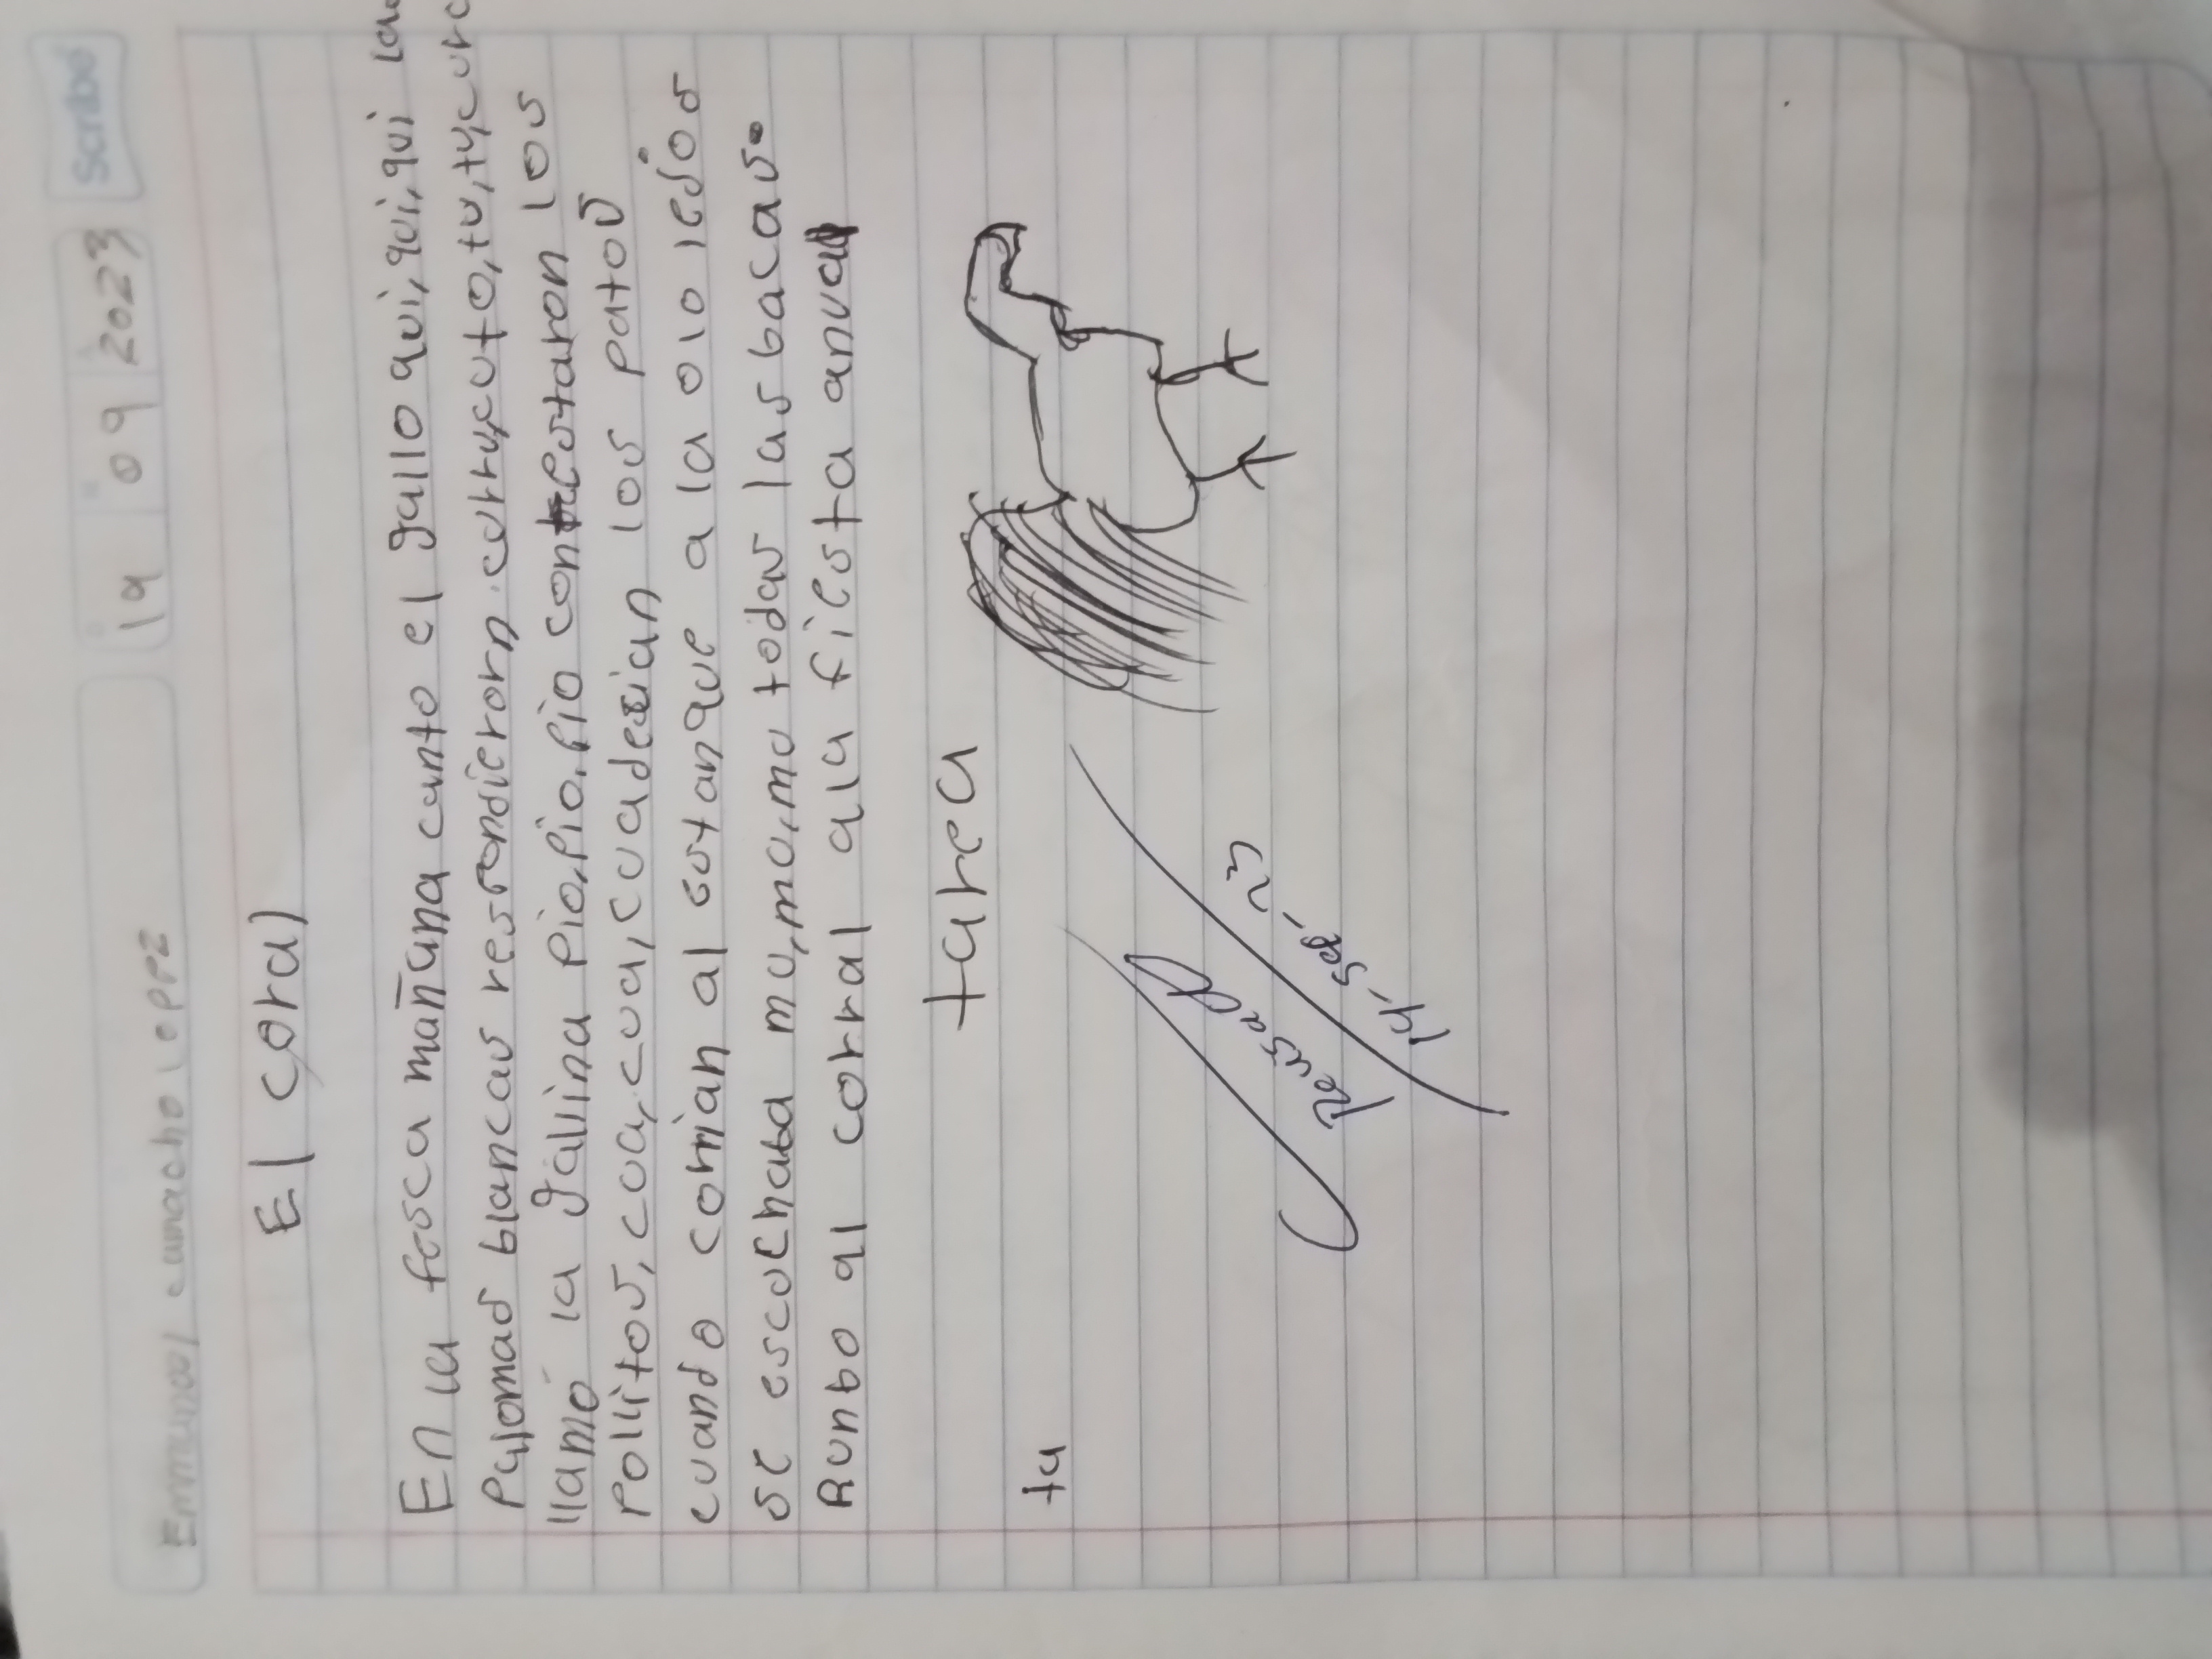 Scribe
14 09 2023
Emmanuel camacho lopez
El coral
En la fesca mañana canto el gallo qui, qui, qui las
palomas blancas respondieron. currucuto, tu, tu, curc
llamo la gallina pio, pio, pio contestaron los
pollitos, coa, cua, cua desian los patos
cuando corian al estanque a la o lo lejos
se escuchaba mu, mu, mu todas las bacas.
Runbo al corral ala fiesta anual
tarea
ta
Revisado
14-sep-23